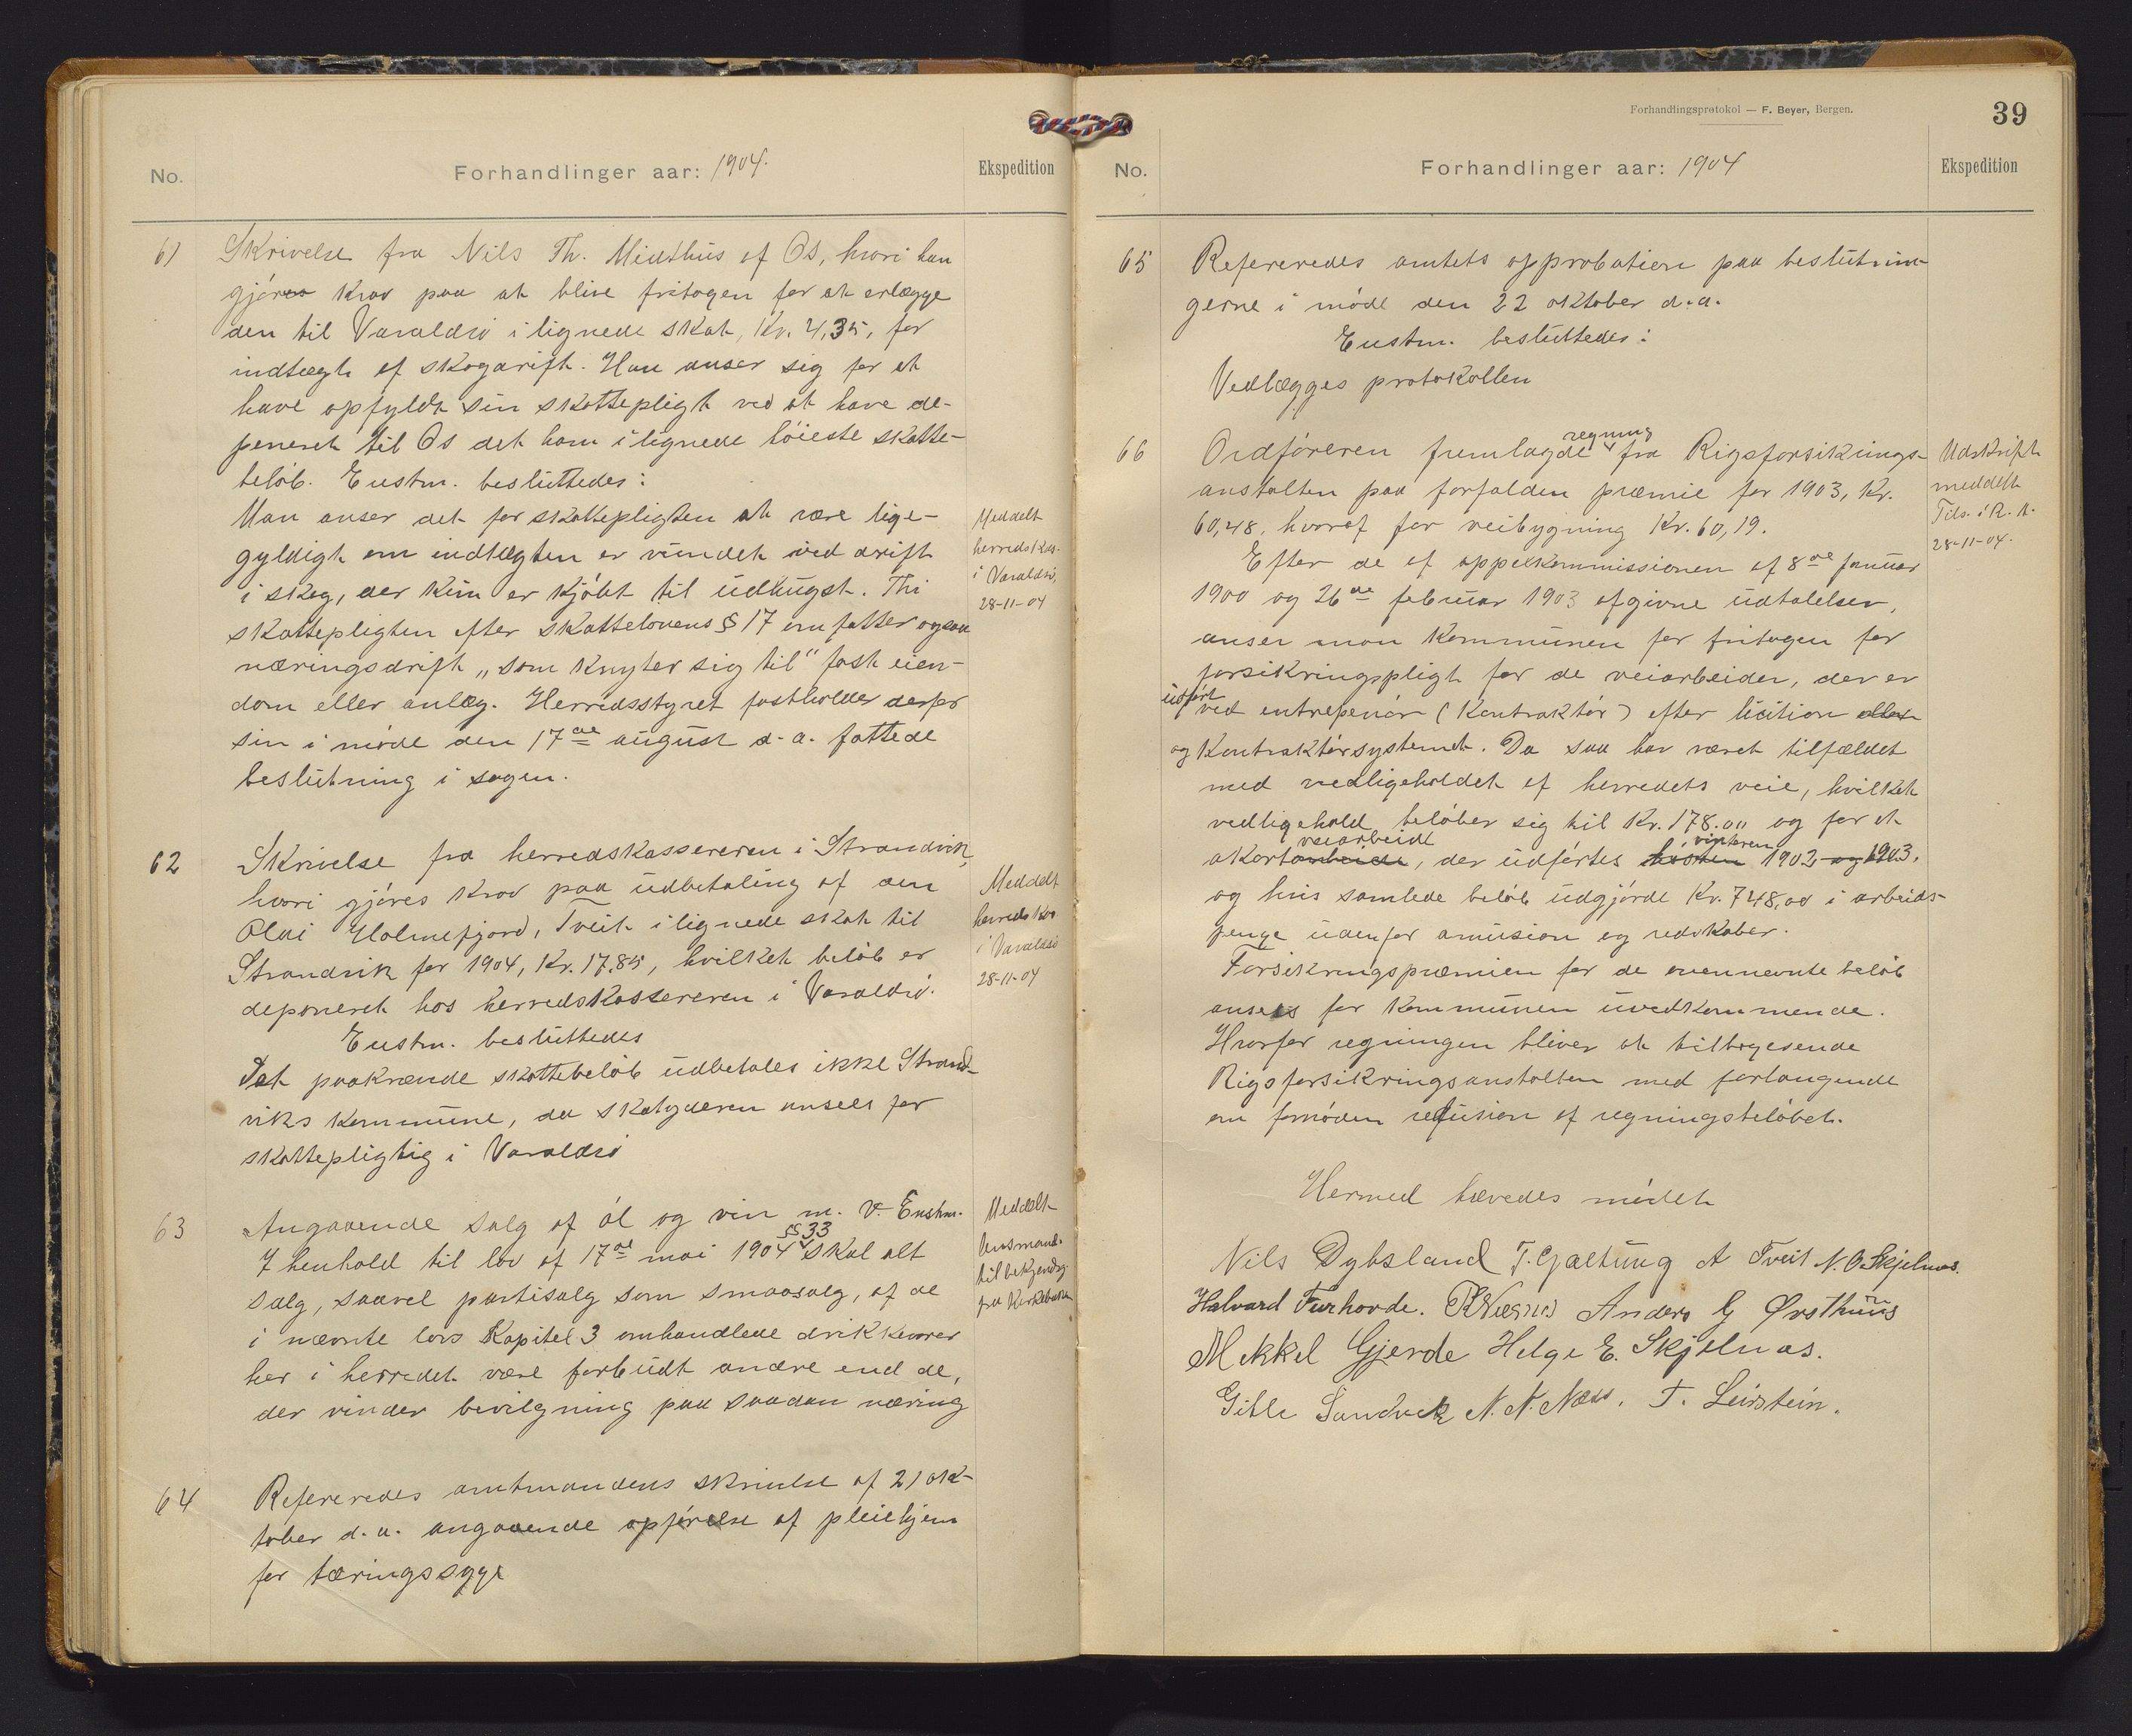 No.
Forhandlinger aar: 1904.
Ekspedition
61
Skrivelse fra Nils Th. Midthus af Os, hvori han
gjøres krav paa at blive fritagen for at erlægge
den til Varaldsø ilignede skat, Kr. 4,35, for
indtægt af skogdrift. Han anser sig for at
have opfyldt sin skattepligt ved at have de-
poneret til Os det ham ilignede høieste skatte-
beløb. Enstm. besluttedes:
Man anser det for skattepligten at være lige-
gyldigt om indtægten er vundet ved drift
i skog, der kun er kjøbt til udhugst. Thi
skattepligten efter skattelovens § 17 omfatter ogsaa
næringsdrift „som knyter sig til" fast eien-
dom eller anlæg. Herredsstyret fastholder derfor
sin i møde den 17de august d. a. fattede
beslutning i sagen.
Meddelt
herredskas.
i Varaldsø,
28-11-04
62
Skrivelse fra herredskassereren i Strandvik,
hvori gjøres krav paa udbetaling af den
Olai Holmefjord, Tveit ilignede skat til
Strandvik for 1904, Kr. 17,85, hvilket beløb er
deponeret hos herredskassereren i Varaldsø.
Enstm. besluttedes
Det paakrævede skattebeløb udbetales ikke Strand-
viks kommune, da skatyderen ansees for
skattepligtig i Varaldsø
Meddelt
herredskas
i Varaldsø
28-11-04
63
Angaaende salg af øl og vin m. v. Enstm.
I henhold til lov af 17de mai 1904 §§ 33 skal alt
salg, saavel partisalg som smaasalg, af de
i nævnte lovs Kapitel 3 omhandlede drikkevarer
her i herredet være forbudt andre end de,
der vinder bevilgning paa saadan næring
Meddelt
lensmand.
til bekjendtg
fra Kirkebakken
64
Refereredes amtmandens skrivelse af 21 ok-
tober d. a. angaaende opførelse af pleiehjem
for tæringssyge
Forhandlingsprotokol — F. Beyer, Bergen.
39
No.
Forhandlinger aar: 1904
Ekspedition
65
Refereredes amtets approbation paa beslutnin-
gerne i møde den 22 oktober d. a.
Enstm. besluttedes:
Vedlægges protokollen
66
Ordføreren fremlagde regning fra Rigsforsikrings-
anstalten paa forfalden præmie for 1903, Kr.
60,48, hvoraf for veibygning Kr. 60,19.
Efter de af appelkommissionen af 8de januar
1900 og 26de februar 1903 afgivne udtalelser,
anser man kommunen for fritagen for
forsikringspligt for de veiarbeider, der er
udført ved entrepenør (kontraktør) efter licition eller
og kontraktørsystemet. Da saa har været tilfældet
med vedligeholdet af herredets veie, hvilket
vedligehold beløber sig til Kr. 178.00 og for et
akortarbeide veiarbeide, der udførtes høsten vinteren 1902 og 1903,
og hvis samlede beløb udgjørde Kr. 748,00 i arbeids-
penge udenfor amusion og redskaber.
Forsikringspræmien for de ovennevnte beløb
ansees for kommunen uvedkommende.
Hvorfor regningen bliver at tilbagesende
Rigsforsikringsanstalten med forlangende
om fornøden refusion af regningsbeløbet.
Udskrift
meddelt
Tils. i R. A.
28-11-04.
Hermed hævedes mødet
Nils Dybsland T. Gjaltung A Tveit N. O. Skjelnæs.
Halvard Furhovde. Anders G Ørsthuus
Mekkel Gjerde Helge E. Skjelnæs.
Gitle Sandvik N. N. Næss. T. Leirstein.